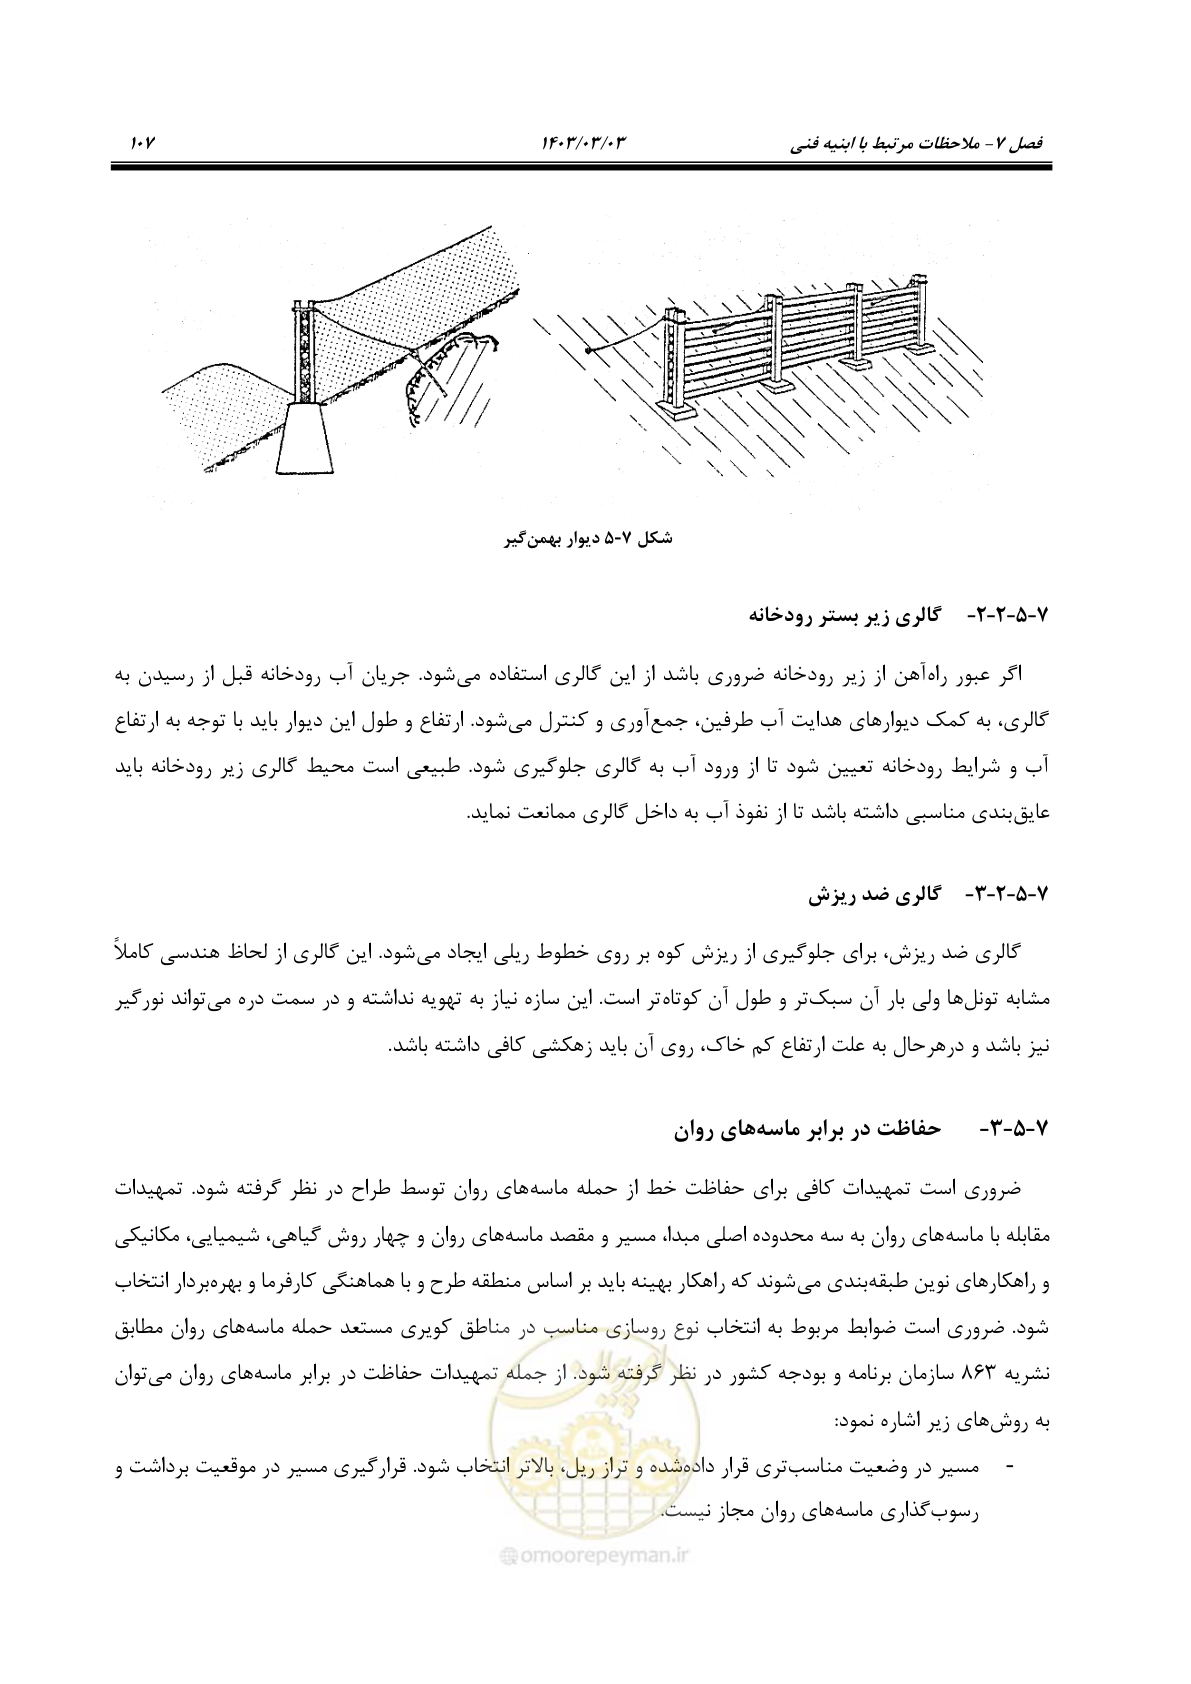 فصل ۷- ملاحظات مرتبط با ابنیه فنی ۱۴۰۳/۰۳/۰۳ ۱۰۷
شکل ۷-۵ دیوار بهمن‌گیر
۷-۵-۲-۲- گالری زیر بستر رودخانه
اگر عبور راه‌آهن از زیر رودخانه ضروری باشد از این گالری استفاده می‌شود. جریان آب رودخانه قبل از رسیدن به
گالری، به کمک دیوارهای هدایت آب طرفین، جمع‌آوری و کنترل می‌شود. ارتفاع و طول این دیوار باید با توجه به ارتفاع
آب و شرایط رودخانه تعیین شود تا از ورود آب به گالری جلوگیری شود. طبیعی است محیط گالری زیر رودخانه باید
عایق‌بندی مناسبی داشته باشد تا از نفوذ آب به داخل گالری ممانعت نماید.
۷-۵-۲-۳- گالری ضد ریزش
گالری ضد ریزش، برای جلوگیری از ریزش کوه بر روی خطوط ریلی ایجاد می‌شود. این گالری از لحاظ هندسی کاملاً
مشابه تونل‌ها ولی بار آن سبک‌تر و طول آن کوتاه‌تر است. این سازه نیاز به تهویه نداشته و در سمت دره می‌تواند نورگیر
نیز باشد و درهرحال به علت ارتفاع کم خاک، روی آن باید زهکشی کافی داشته باشد.
۷-۵-۳- حفاظت در برابر ماسه‌های روان
ضروری است تمهیدات کافی برای حفاظت خط از حمله ماسه‌های روان توسط طراح در نظر گرفته شود. تمهیدات
مقابله با ماسه‌های روان به سه محدوده اصلی مبدا، مسیر و مقصد ماسه‌های روان و چهار روش گیاهی، شیمیایی، مکانیکی
و راهکارهای نوین طبقه‌بندی می‌شوند که راهکار بهینه باید بر اساس منطقه طرح و با هماهنگی کارفرما و بهره‌بردار انتخاب
شود. ضروری است ضوابط مربوط به انتخاب نوع روسازی مناسب در مناطق کویری مستعد حمله ماسه‌های روان مطابق
نشریه ۸۶۳ سازمان برنامه و بودجه کشور در نظر گرفته شود. از جمله تمهیدات حفاظت در برابر ماسه‌های روان می‌توان
به روش‌های زیر اشاره نمود:
- مسیر در وضعیت مناسب‌تری قرار داده‌شده و تراز ریل، بالاتر انتخاب شود. قرارگیری مسیر در موقعیت برداشت و
رسوب‌گذاری ماسه‌های روان مجاز نیست.
@omoorepeyman.ir